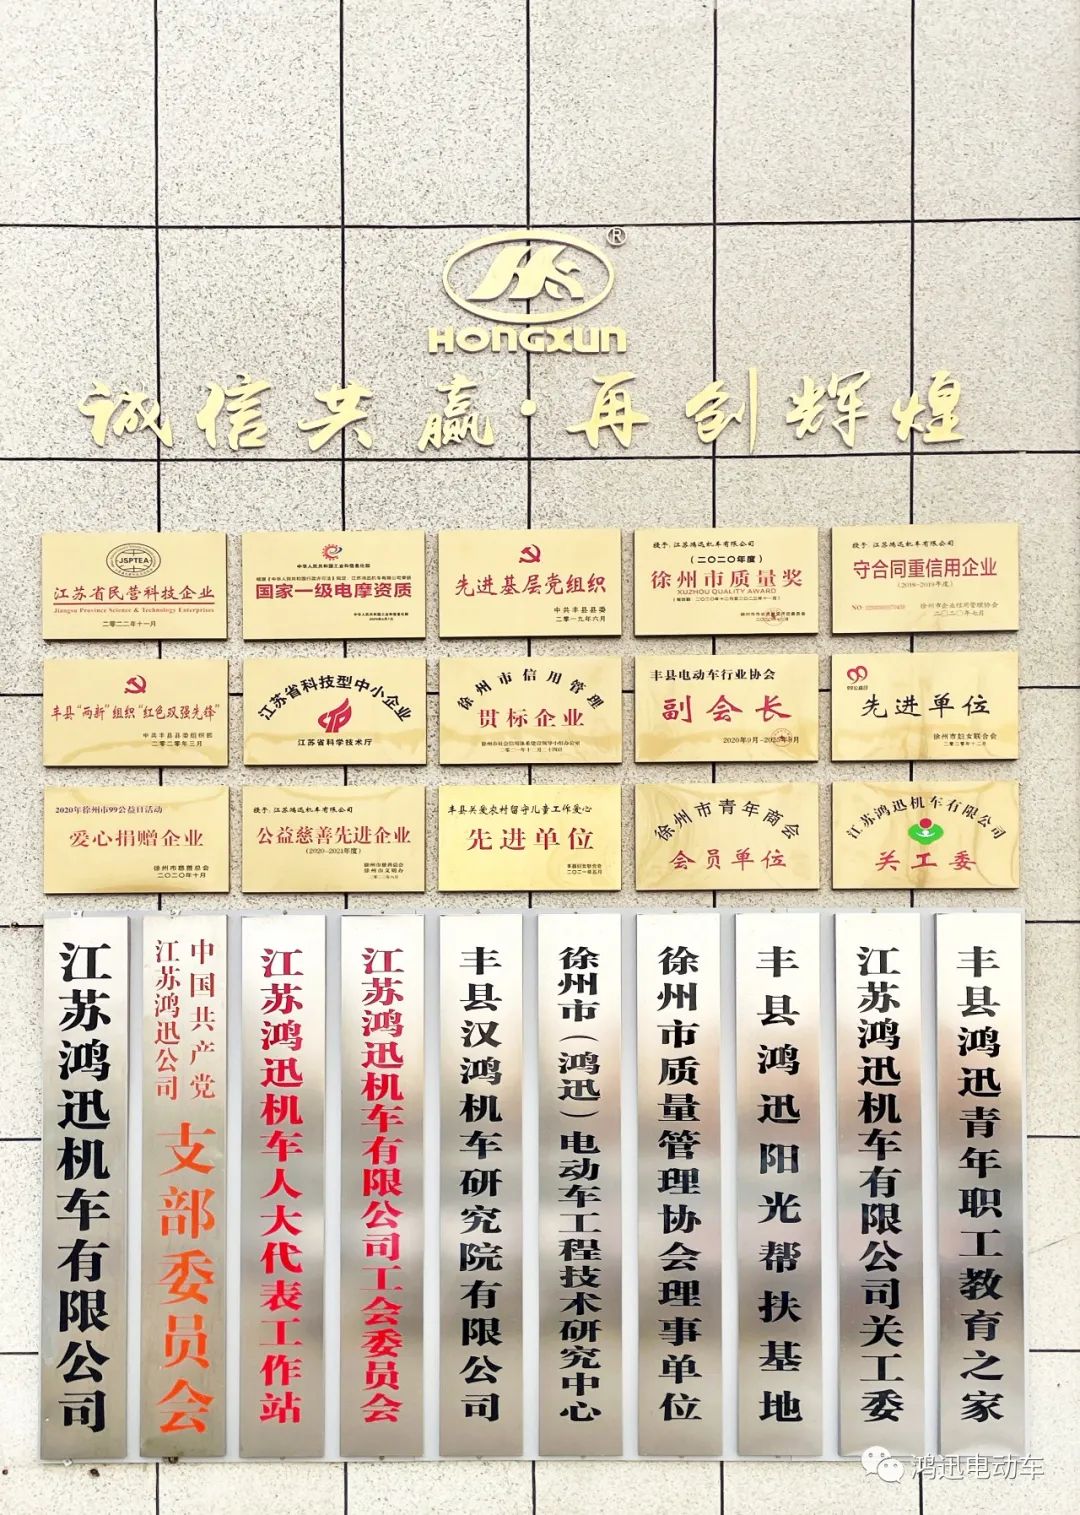 HS
®
HONGXUN
诚信共赢·再创辉煌
JSPTEA
江苏省民营科技企业
Jiangsu Province Science & Technology Enterprises
二〇二二年十一月
中华人民共和国工业和信息化部
国家一级电摩资质
中华人民共和国工业和信息化部
先进基层党组织
中共丰县县委
二〇一九年六月
授予:江苏鸿迅机车有限公司
(二〇二〇年度)
徐州市质量奖
XUZHOU QUALITY AWARD
授予:江苏鸿迅机车有限公司
守合同重信用企业
(2018-2019年度)
徐州市企业信用管理协会
二〇二〇年七月
丰县“两新”组织“红色双强先锋”
中共丰县县委组织部
二〇二〇年三月
江苏省科技型中小企业
江苏省科学技术厅
徐州市信用管理
贯标企业
丰县电动车行业协会
副会长
2020年9月-2025年9月
99公益日
先进单位
徐州市妇女联合会
二〇二〇年十二月
2020年徐州市99公益日活动
爱心捐赠企业
徐州市慈善总会
二〇二〇年十月
授予:江苏鸿迅机车有限公司
公益慈善先进企业
(2020-2021年度)
徐州市慈善总会
徐州市文明办
丰县关爱农村留守儿童工作爱心
先进单位
丰县妇女联合会
二〇二一年五月
徐州市青年商会
会员单位
江苏鸿迅机车有限公司
关工委
江苏鸿迅机车有限公司
中国共产党
江苏鸿迅公司
支部委员会
江苏鸿迅机车人大代表工作站
江苏鸿迅机车有限公司工会委员会
丰县汉鸿机车研究院有限公司
徐州市(鸿迅)电动车工程技术研究中心
徐州市质量管理协会理事单位
丰县鸿迅阳光帮扶基地
江苏鸿迅机车有限公司关工委
丰县鸿迅青年职工教育之家
鸿迅电动车